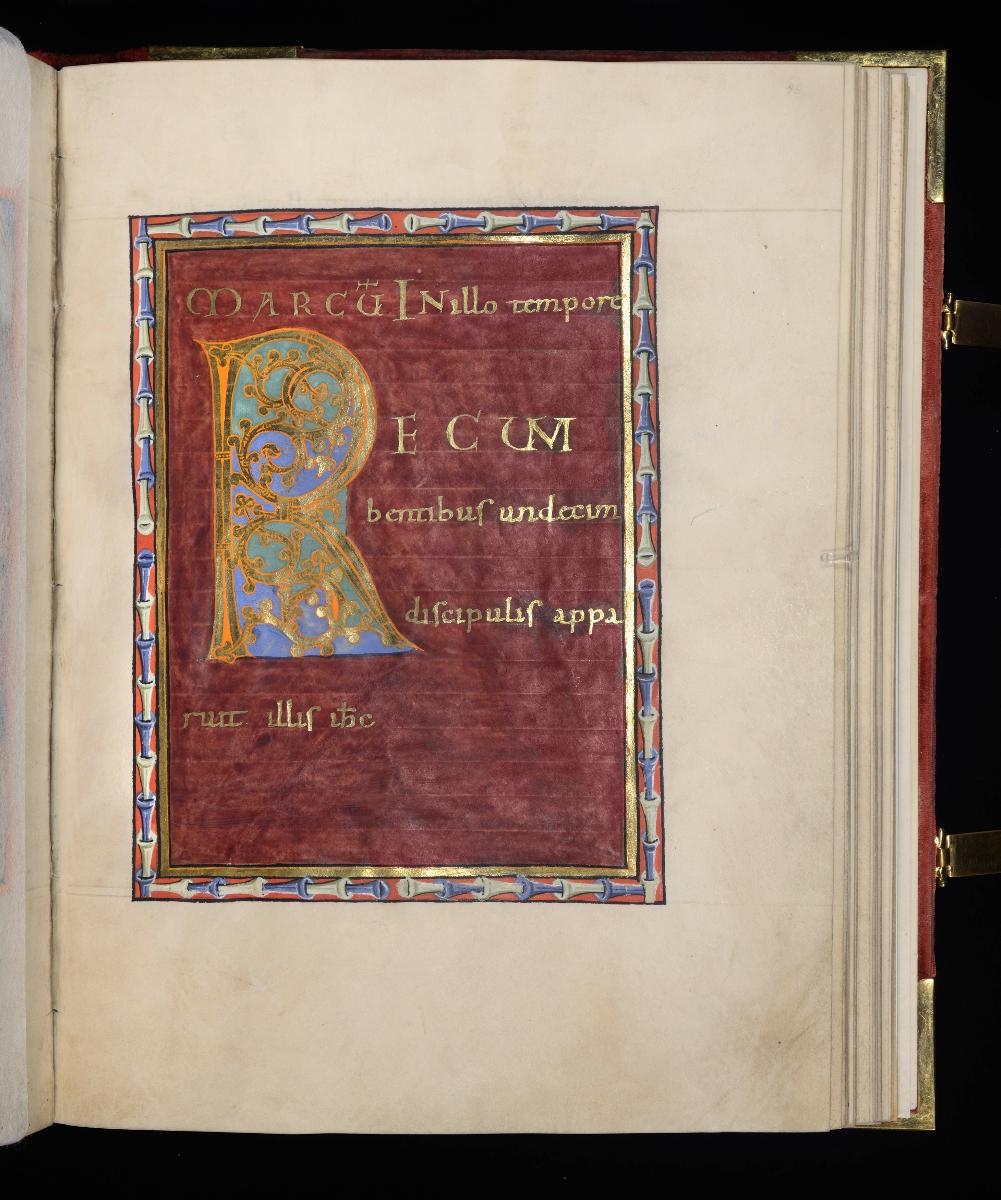 MARCŪ INillo tempore
RECUM
bentibus undecim
discipulis appa
ruit illis ihc